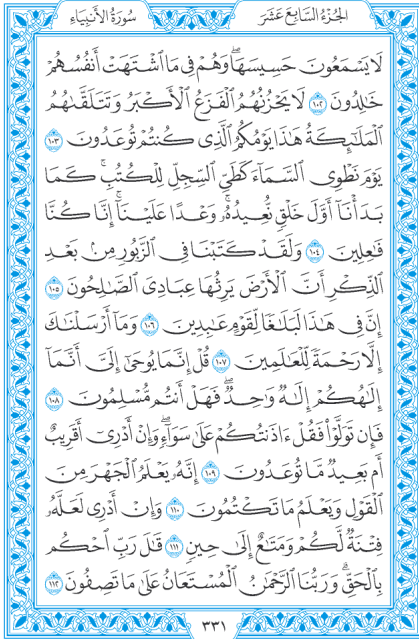 الجُزْءُ السَّابِعَ عَشَرَ سُورَةُ الأَنْبِيَاءِ
لَا يَسْمَعُونَ حَسِيسَهَا ۖ وَهُمْ فِي مَا اشْتَهَتْ أَنفُسُهُمْ
خَالِدُونَ ١٠٢ لَا يَحْزُنُهُمُ الْفَزَعُ الْأَكْبَرُ وَتَتَلَقَّاهُمُ
الْمَلَائِكَةُ هَٰذَا يَوْمُكُمُ الَّذِي كُنتُمْ تُوعَدُونَ ١٠٣
يَوْمَ نَطْوِي السَّمَاءَ كَطَيِّ السِّجِلِّ لِلْكُتُبِ ۚ كَمَا
بَدَأْنَا أَوَّلَ خَلْقٍ نُّعِيدُهُ ۚ وَعْدًا عَلَيْنَا ۚ إِنَّا كُنَّا
فَاعِلِينَ ١٠٤ وَلَقَدْ كَتَبْنَا فِي الزَّبُورِ مِن بَعْدِ
الذِّكْرِ أَنَّ الْأَرْضَ يَرِثُهَا عِبَادِيَ الصَّالِحُونَ ١٠٥
إِنَّ فِي هَٰذَا لَبَلَاغًا لِّقَوْمٍ عَابِدِينَ ١٠٦ وَمَا أَرْسَلْنَاكَ
إِلَّا رَحْمَةً لِّلْعَالَمِينَ ١٠٧ قُلْ إِنَّمَا يُوحَىٰ إِلَيَّ أَنَّمَا
إِلَٰهُكُمْ إِلَٰهٌ وَاحِدٌ ۖ فَهَلْ أَنتُم مُّسْلِمُونَ ١٠٨
فَإِن تَوَلَّوْا فَقُلْ ءَاذَنتُكُمْ عَلَىٰ سَوَاءٍ ۖ وَإِنْ أَدْرِي أَقَرِيبٌ
أَم بَعِيدٌ مَّا تُوعَدُونَ ١٠٩ إِنَّهُ يَعْلَمُ الْجَهْرَ مِنَ
الْقَوْلِ وَيَعْلَمُ مَا تَكْتُمُونَ ١١٠ وَإِنْ أَدْرِي لَعَلَّهُ
فِتْنَةٌ لَّكُمْ وَمَتَاعٌ إِلَىٰ حِينٍ ١١١ قَٰلَ رَبِّ احْكُم
بِالْحَقِّ ۗ وَرَبُّنَا الرَّحْمَٰنُ الْمُسْتَعَانُ عَلَىٰ مَا تَصِفُونَ ١١٢
٣٣١